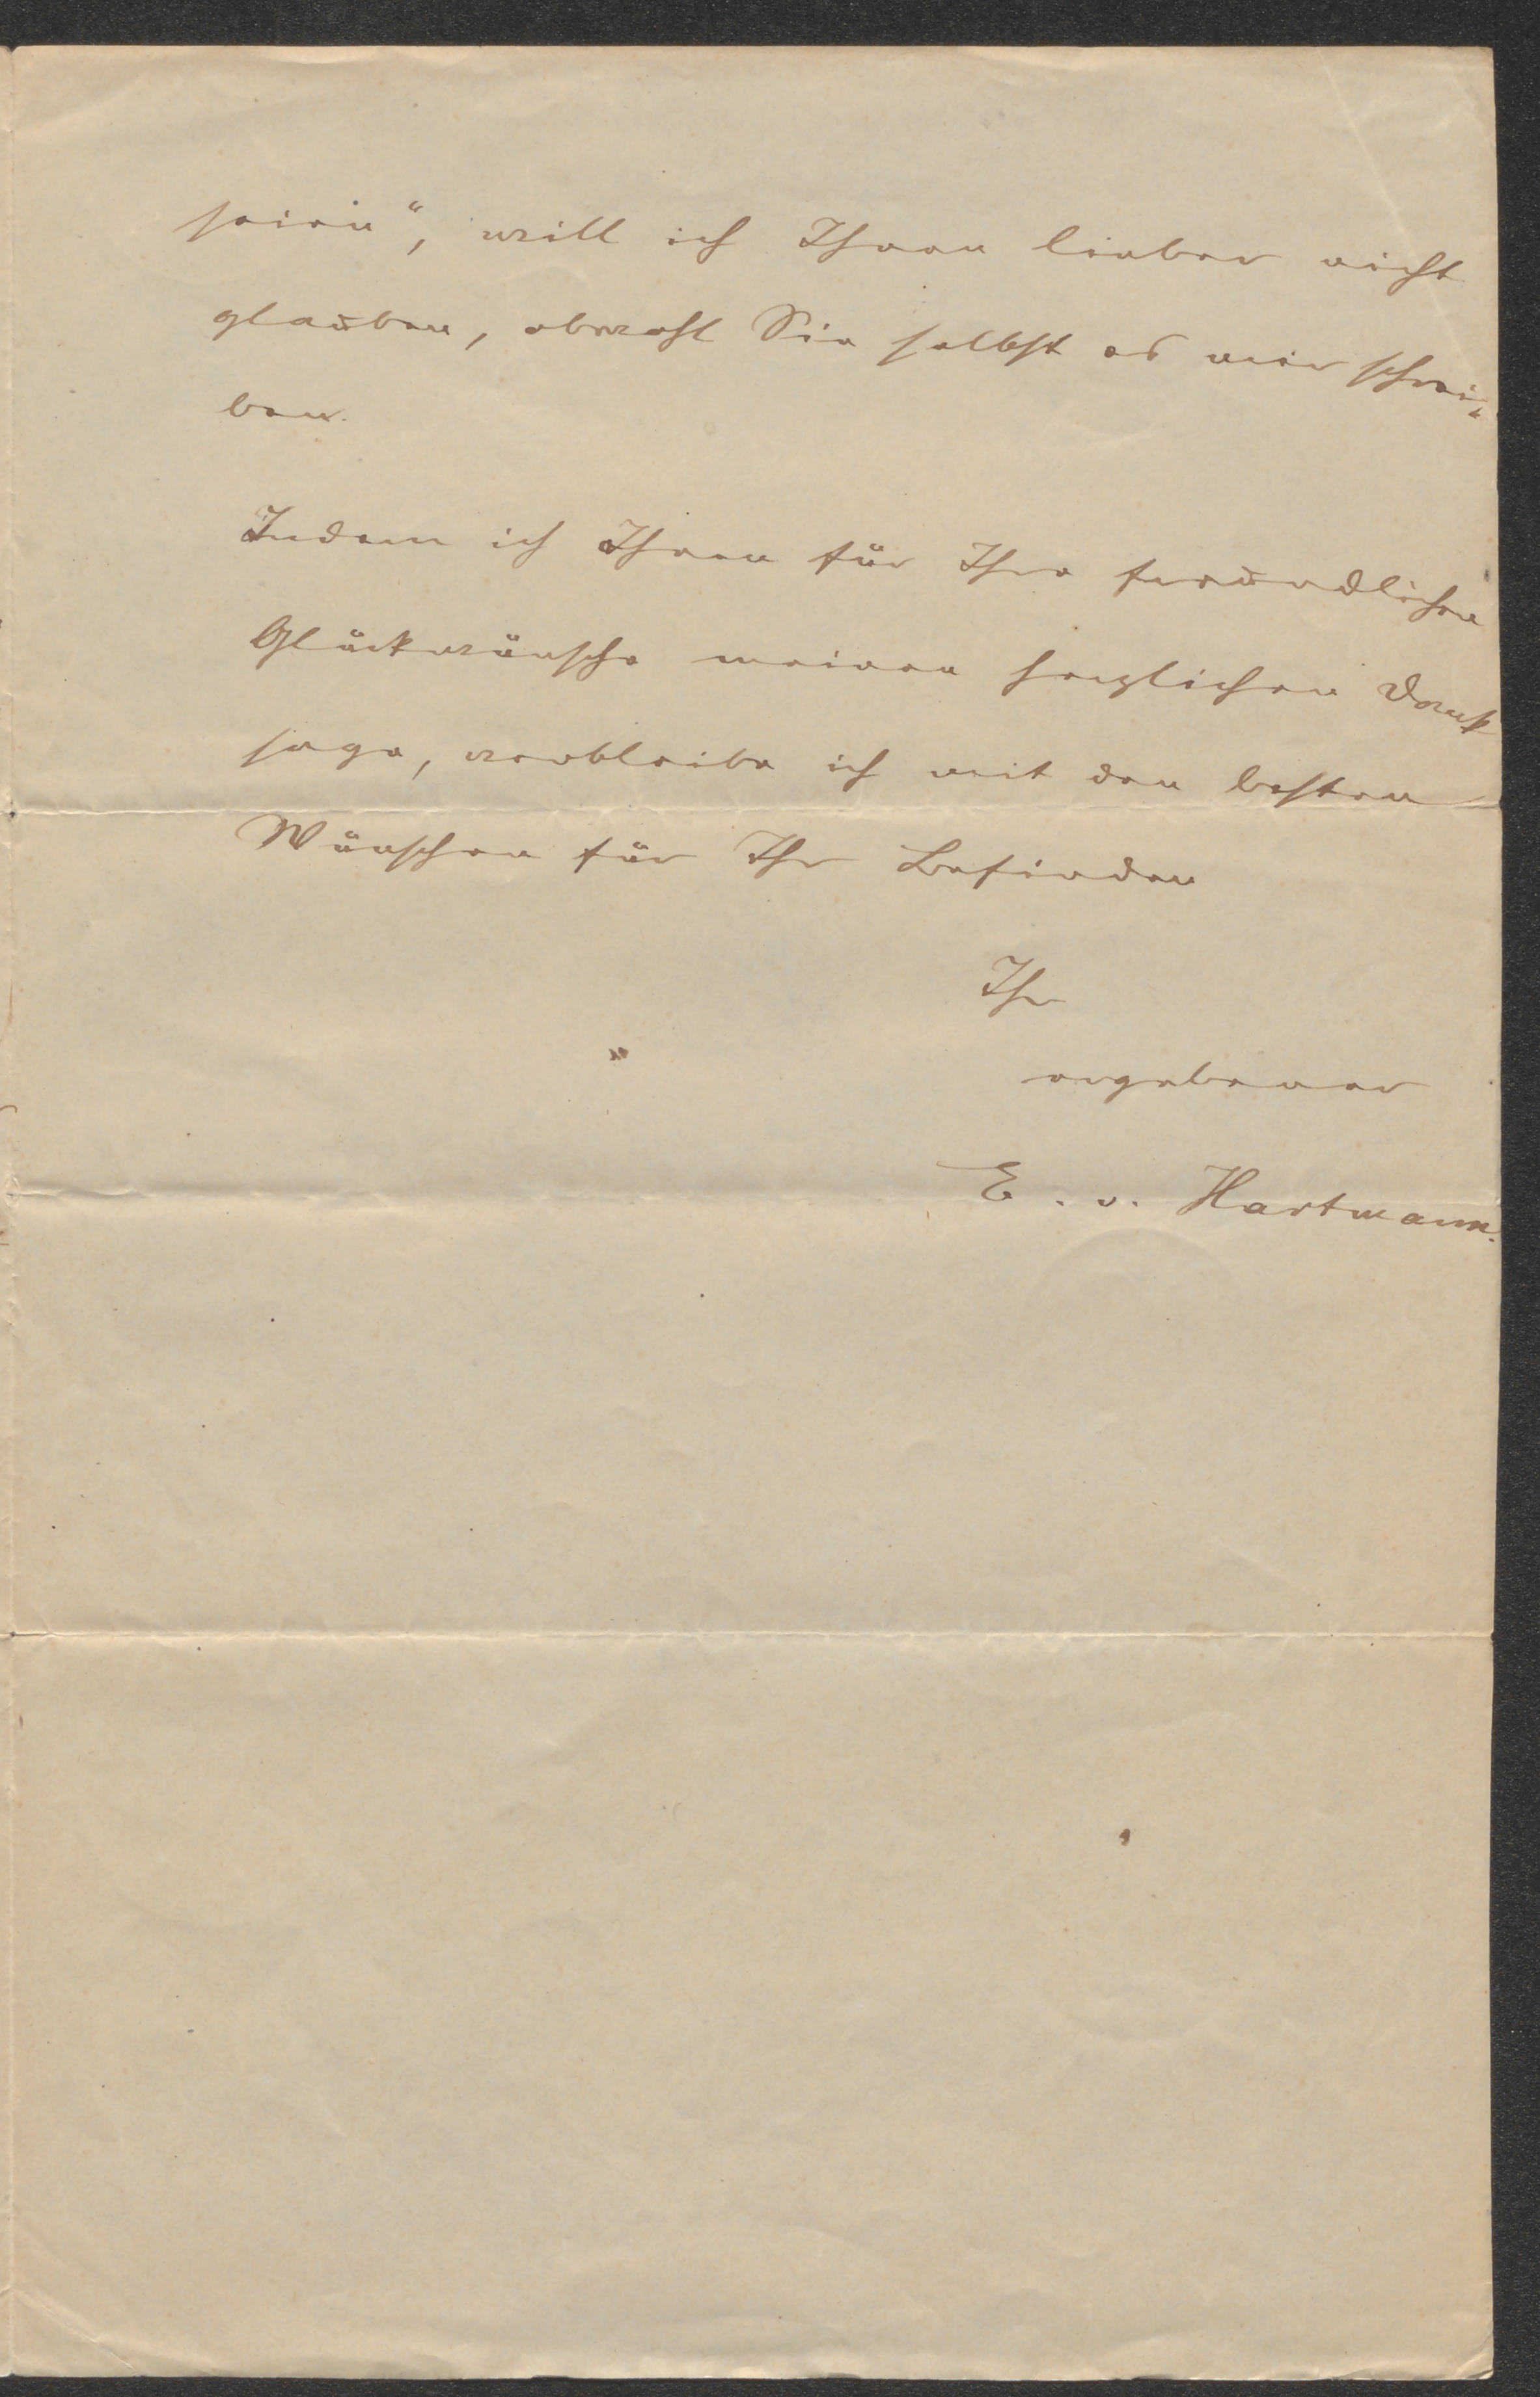 seien“, will ich Ihnen lieber nicht
glauben, obwohl Sie selbst es mir schrei-
ben.
Indem ich Ihnen für Ihre freundlichen
Glückwünsche meinen herzlichen Dank
sage, verbleibe ich mit den besten
Wünschen für Ihr Befinden
Ihr
ergebener
E. v. Hartmann.